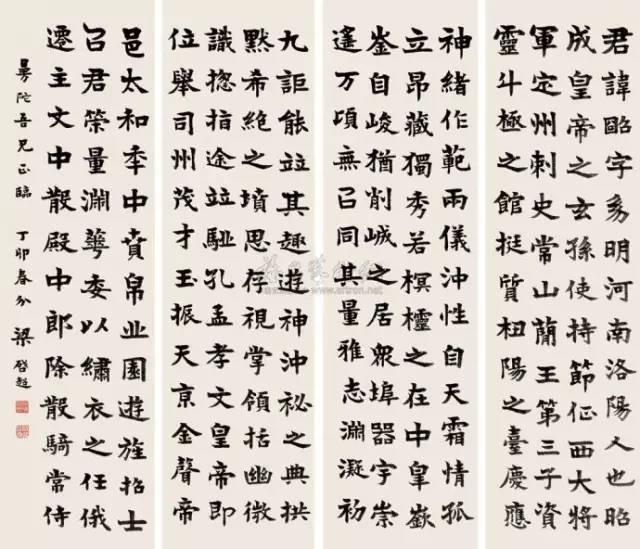 君諱字明河南洛陽人也昭
成皇帝之玄孫使持節征西大將
軍定州刺史常山簡王第三子資
靈斗極之館挺質杻陽之臺慶應
神緒作範兩儀沖性自天霜情孤
立昂藏獨秀若榠櫨之在中皐嶽
崟自峻猶削成之居衆埠器宇崇
邃万頃無㠯同其量雅志淵凝初
九詎能竝其趣遊神沖祕之典拱
默希絶之墳思存視掌領括幽微
識揔指途竝驅孔孟孝文皇帝即
位舉司州茂才玉振天京金聲帝
邑太和季中賁帛丘園遊旌招士
㠯君榮量淵華委以繡衣之任俄
遷主文中散殿中郎除散騎常侍
曼陀吾兄正臨 丁卯春分 梁啓超
www.artron.net